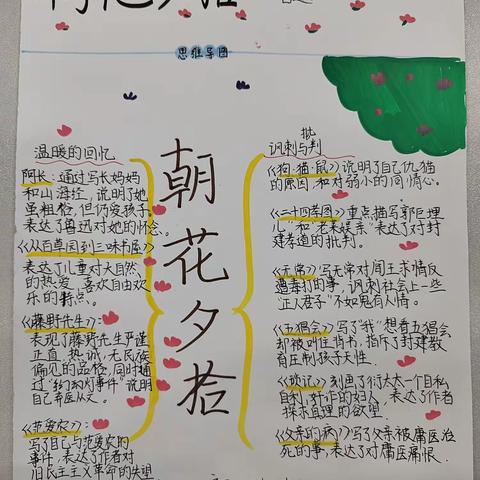 朝花夕拾
思维导图
朝花夕拾
温暖的回忆
阿长：通过写长妈妈
和山海经，说明了她
虽粗俗，但仍爱孩子。
表达了鲁迅对她的怀念。
《从百草园到三味书屋》
表达了儿童对大自然
的热爱，喜欢自由欢
乐的特点。
《藤野先生》：
表现了藤野先生严谨
正直，热诚，无民族
偏见的品格，同时通
过“灯事件”说明
自己弃医从文。
《范爱农》：
写了自己与范爱农的
事件，表达了作者对
旧民主主义革命的失望
批
讽刺与判
《狗·猫·鼠》说明了自己仇猫
的原因，和对弱小的同情心。
《二十四孝图》重点描写郭巨埋
儿”和“老莱娱亲”表达了对封
建孝道的批判。
《无常》写无常对间王求情反
遭毒打的事，讽刺社会上一些
“正人君子”不如鬼有人情。
《五猖会》写了“我”想看五猖会
却被叫住背书，指斥了封建教
育压制孩子天性
《琐记》刻画了衍太太一个自私
自利，奸诈的妇人，表达了作者
探求真理的欲望
《父亲的病》写了父亲被庸医治
死的事，表达了对庸医痛恨.